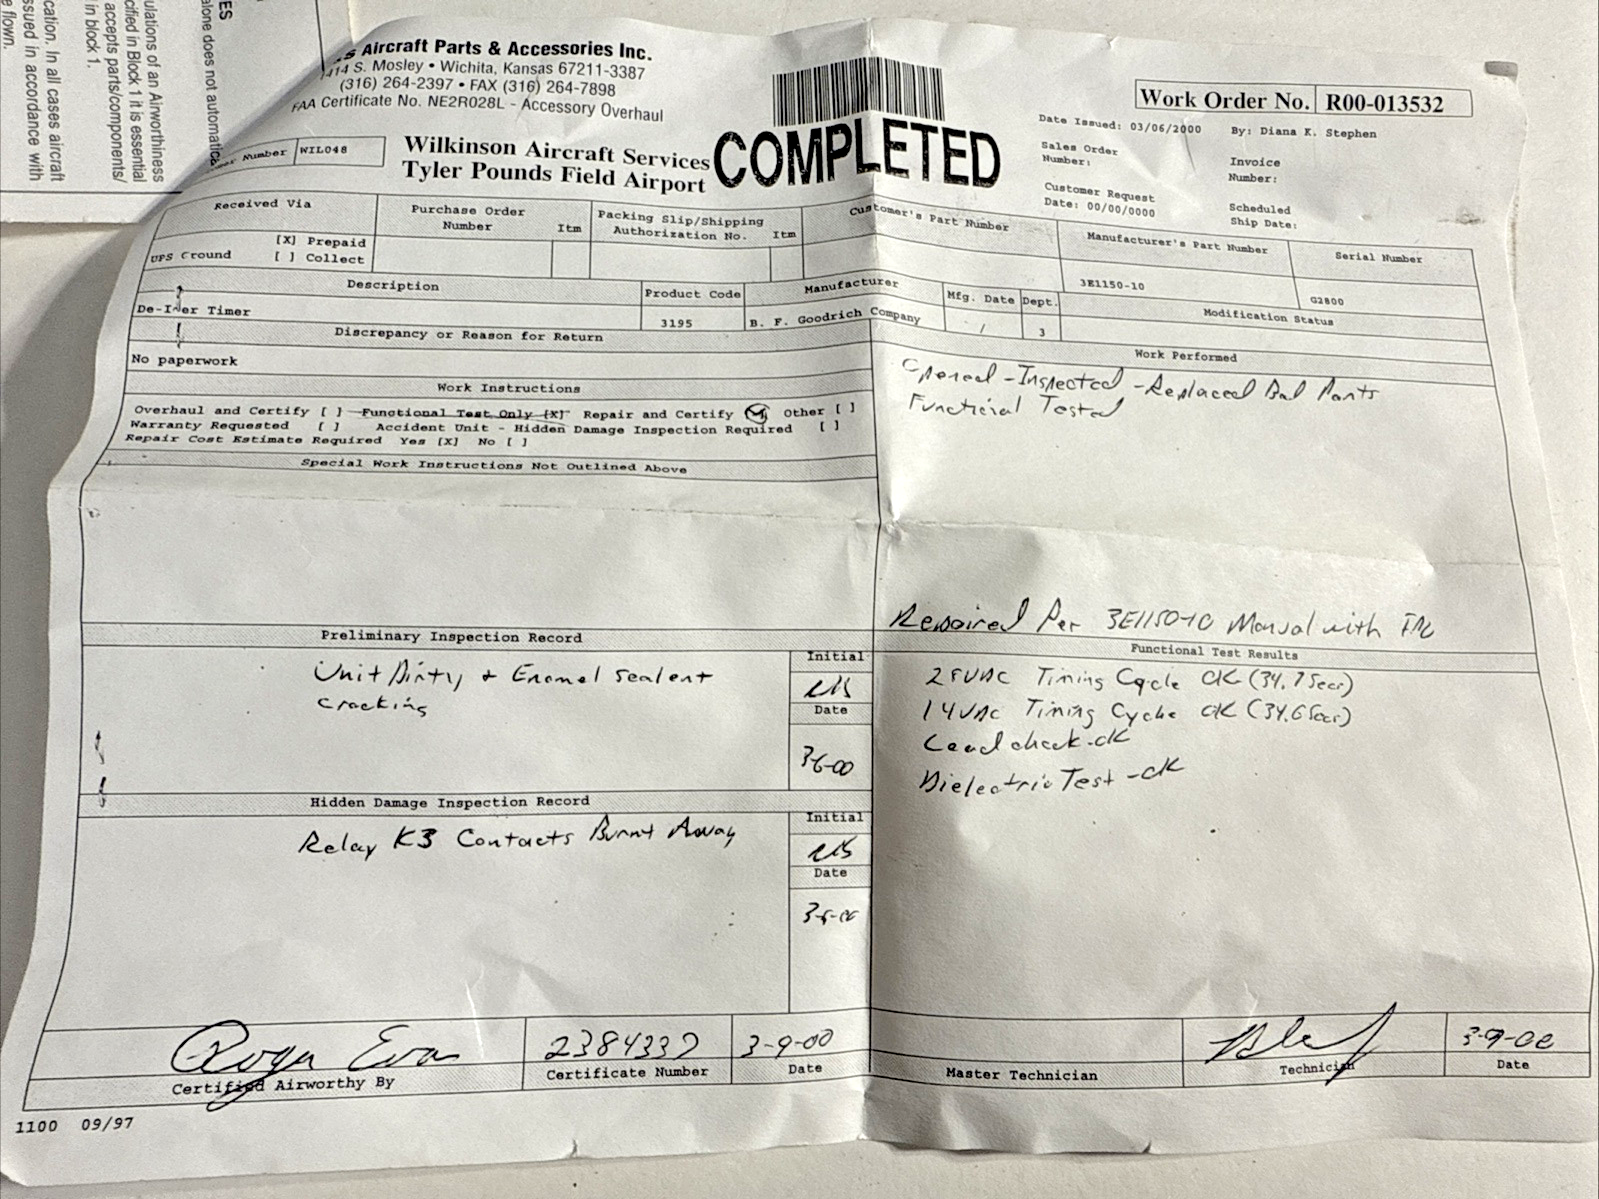 ES
alone does not automatic
ulations of an Airworthiness
cified in Block 1 it is essential
accepts parts/components/
in block 1.
cation. In all cases aircraft
ssued in accordance with
e flown.
s Aircraft Parts & Accessories Inc.
1414 S. Mosley • Wichita, Kansas 67211-3387
(316) 264-2397 • FAX (316) 264-7898
FAA Certificate No. NE2R028L - Accessory Overhaul
COMPLETED
Work Order No. R00-013532
Date Issued: 03/06/2000 By: Diana K. Stephen
Sales Order Number:
Invoice Number:
Customer Request Date: 00/00/0000
Scheduled Ship Date:
Number WIL048
Wilkinson Aircraft Services
Tyler Pounds Field Airport
Received Via
UPS Ground
[X] Prepaid
[ ] Collect
Purchase Order Number Itm
Packing Slip/Shipping Authorization No. Itm
Customer's Part Number
Manufacturer's Part Number
3E1150-10
Serial Number
G2800
Description
De-Icer Timer
Product Code
3195
Manufacturer
B. F. Goodrich Company
Mfg. Date
/
Dept.
3
Modification Status
Discrepancy or Reason for Return
No paperwork
Work Instructions
Overhaul and Certify [ ] Functional Test Only [X] Repair and Certify Other [ ]
Warranty Requested [ ] Accident Unit - Hidden Damage Inspection Required [ ]
Repair Cost Estimate Required Yes [X] No [ ]
Special Work Instructions Not Outlined Above
Work Performed
Opened - Inspected - Replaced Bad Parts
Functional Tested
Repaired Per 3E1150-10 Manual with
Preliminary Inspection Record
Unit Dirty + Enamel Sealent
cracking
Initial
Date
3-6-00
Hidden Damage Inspection Record
Relay K3 Contacts Burnt Away
Initial
Date
3-6-00
Functional Test Results
28VDC Timing Cycle OK (34.7 Secs)
14VDC Timing Cycle OK (34.6 Secs)
Load check - ok
Dielectric Test - ok
Roger Evan
Certified Airworthy By
2384337
Certificate Number
3-9-00
Date
Master Technician
Technician
3-9-00
Date
1100 09/97